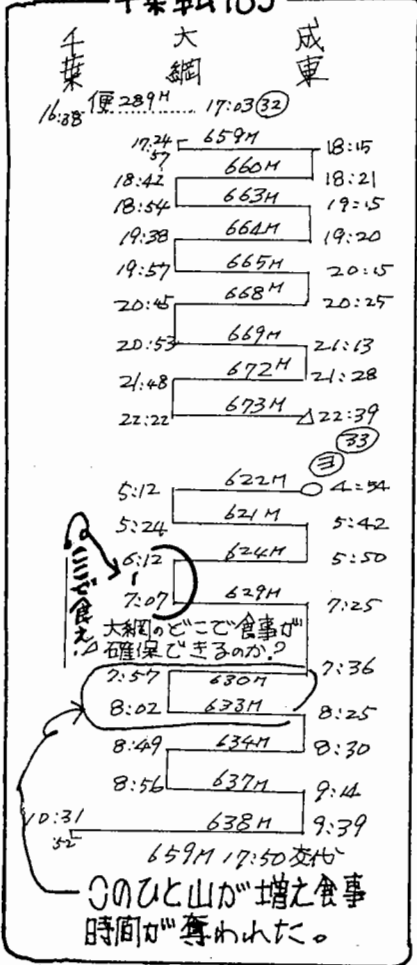 千葉 大網 成東
16:38 便289M 17:03 ㉜
17:24 57 659M 18:15
18:42 660M 18:21
18:54 663M 19:15
19:38 664M 19:20
19:57 665M 20:15
20:45 668M 20:25
20:53 669M 21:13
21:48 672M 21:28
22:22 673M △22:39
㉝
ヨ
5:12 622M ○4:54
5:24 621M 5:42
6:12 624M 5:50
7:07 629M 7:25
ここで食え!
大網のどこで食事が
確保できるのか?
7:57 630M 7:36
8:02 633M 8:25
8:49 634M 8:30
8:56 637M 9:14
10:31 52 638M 9:39
659M 17:50 交代
○のひと山が増え食事
時間が奪われた。